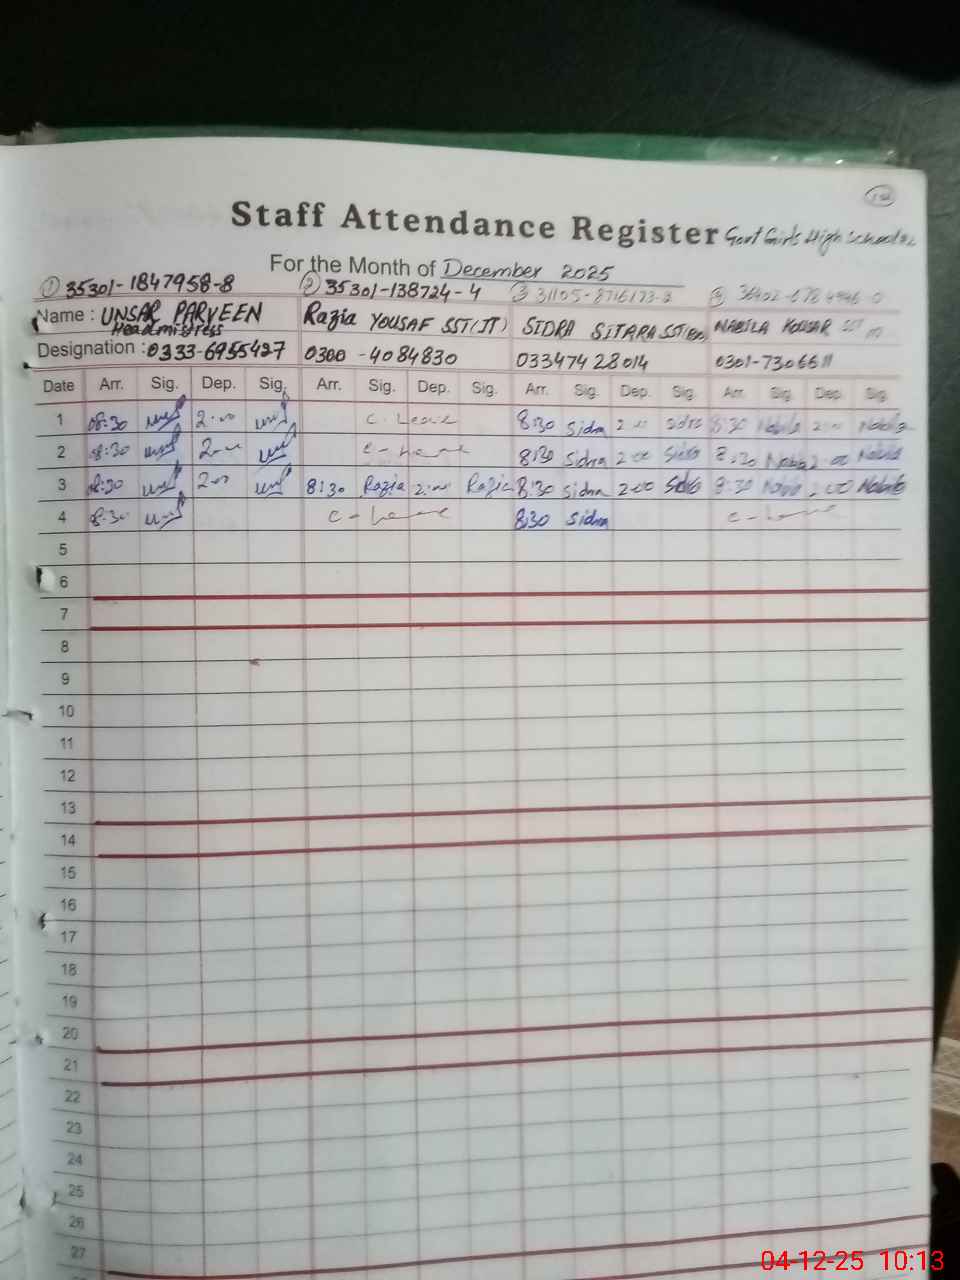 Staff Attendance Register Govt Girls High School
For the Month of December 2025
① 35301-1847958-8 ② 35301-138724-4 ③ 31105-8716173-2
Name : UNSAR PARVEEN Razia YOUSAF SST(IT) SIDRA SITARA NABILA KOUSAR SST
Headmistress
Designation : 0333-6955427 0300-4084830 03347428014 0301-7306611
Date Arr. Sig. Dep. Sig. Arr. Sig. Dep. Sig. Arr. Sig. Dep. Sig. Arr. Sig. Dep. Sig.
1 08:30 2:00 C. Leave 8:30 Sidra 2:00 Sidra 8:30 Nabila 2:00 Nabila
2 08:30 2:00 C-Leave 8:30 Sidra 2:00 Sidra 8:30 Nabila 2:00 Nabila
3 08:30 2:00 8:30 Razia 2:00 Razia 8:30 Sidra 2:00 Sidra 8:30 Nabila 2:00 Nabila
4 08:30 C-Leave 8:30 Sidra C-Leave
5
6
7
8
9
10
11
12
13
14
15
16
17
18
19
20
21
22
23
24
25
26
27
04-12-25 10:13